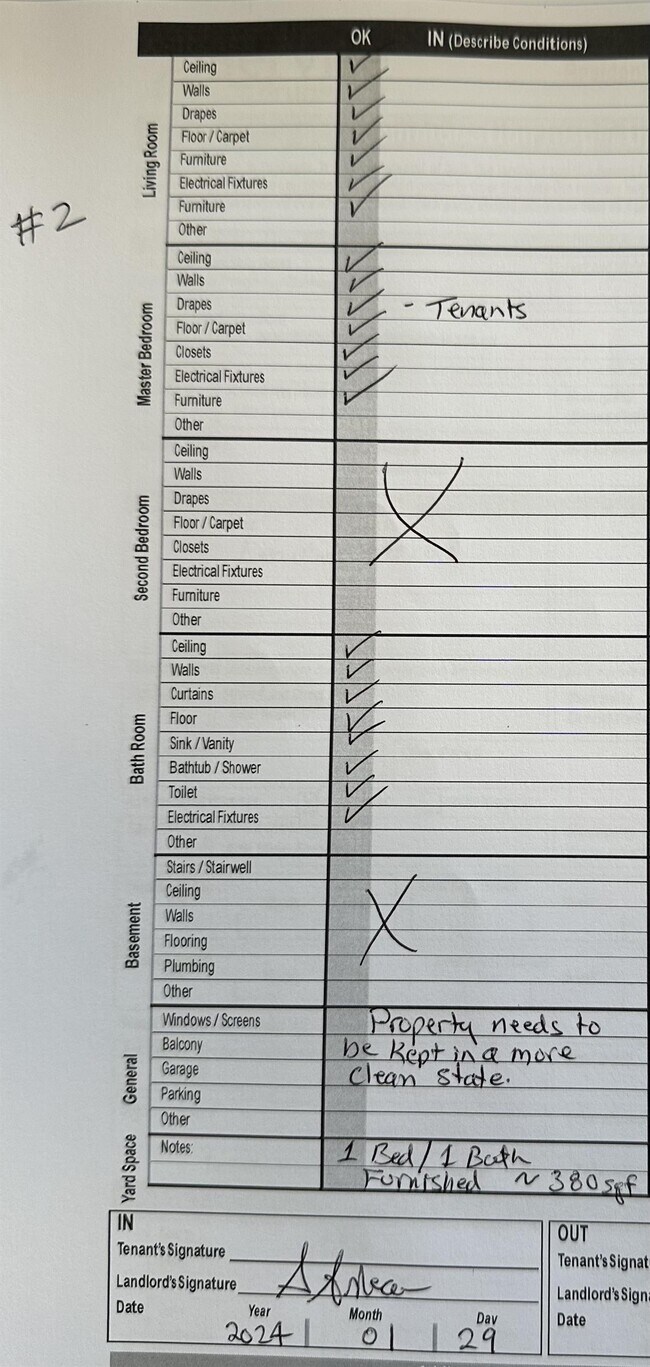 OK IN (Describe Conditions)
#2
Living Room
Ceiling ✓
Walls ✓
Drapes ✓
Floor / Carpet ✓
Furniture ✓
Electrical Fixtures ✓
Furniture ✓
Other
Master Bedroom
Ceiling ✓
Walls ✓
Drapes ✓ - Tenants
Floor / Carpet ✓
Closets ✓
Electrical Fixtures ✓
Furniture ✓
Other
Second Bedroom
Ceiling
Walls
Drapes
Floor / Carpet
Closets
Electrical Fixtures
Furniture
Other
Bath Room
Ceiling ✓
Walls ✓
Curtains ✓
Floor ✓
Sink / Vanity ✓
Bathtub / Shower ✓
Toilet ✓
Electrical Fixtures ✓
Other
Basement
Stairs / Stairwell
Ceiling
Walls
Flooring
Plumbing
Other
General
Windows / Screens Property needs to
Balcony be kept in a more
Garage clean state.
Parking
Other
Yard Space
Notes: 1 Bed / 1 Bath
Furnished ~ 380 sqf
IN
Tenant's Signature
Landlord's Signature
Date Year Month Day
2024 01 29
OUT
Tenant's Signat
Landlord's Sign
Date